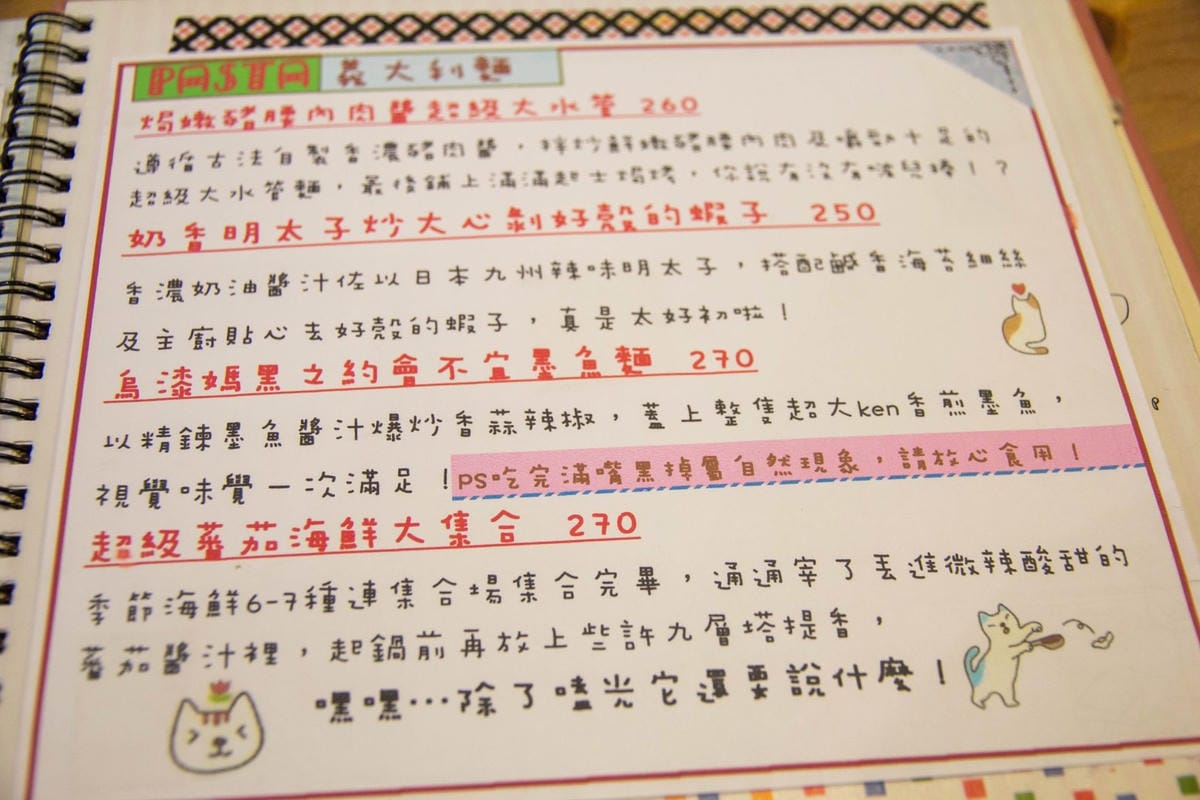 PASTA 義大利麵
焗嫩豬腰內肉醬超級大水管 260
遵循古法自製香濃豬肉醬，拌炒鮮嫩豬腰內肉及嚼勁十足的
超級大水管麵，最後鋪上滿滿起士焗烤，你說有沒有啵兒棒！？
奶香明太子炒大心剝好殼的蝦子 250
香濃奶油醬汁佐以日本九州辣味明太子，搭配鹹香海苔細絲
及主廚貼心去好殼的蝦子，真是太好初啦！
烏漆媽黑之約會不宜墨魚麵 270
以精鍊墨魚醬汁爆炒香蒜辣椒，蓋上整隻超大ken香煎墨魚，
視覺味覺一次滿足！PS吃完滿嘴黑掉屬自然現象，請放心食用！
超級蕃茄海鮮大集合 270
季節海鮮6-7種連集合場集合完畢，通通宰了丟進微辣酸甜的
蕃茄醬汁裡，起鍋前再放上些許九層塔提香，
嘿嘿…除了嗑光它還要說什麼！